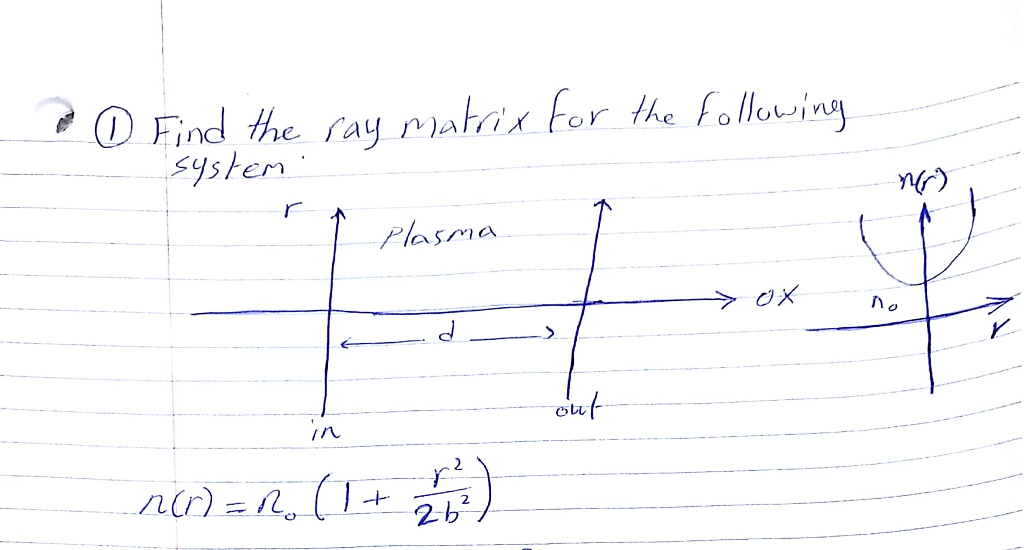 ① Find the ray matrix for the following
system.
n(r)
r
Plasma
ox
n₀
d
r
out
in
n(r) = n₀ (1 + r²/2b²)